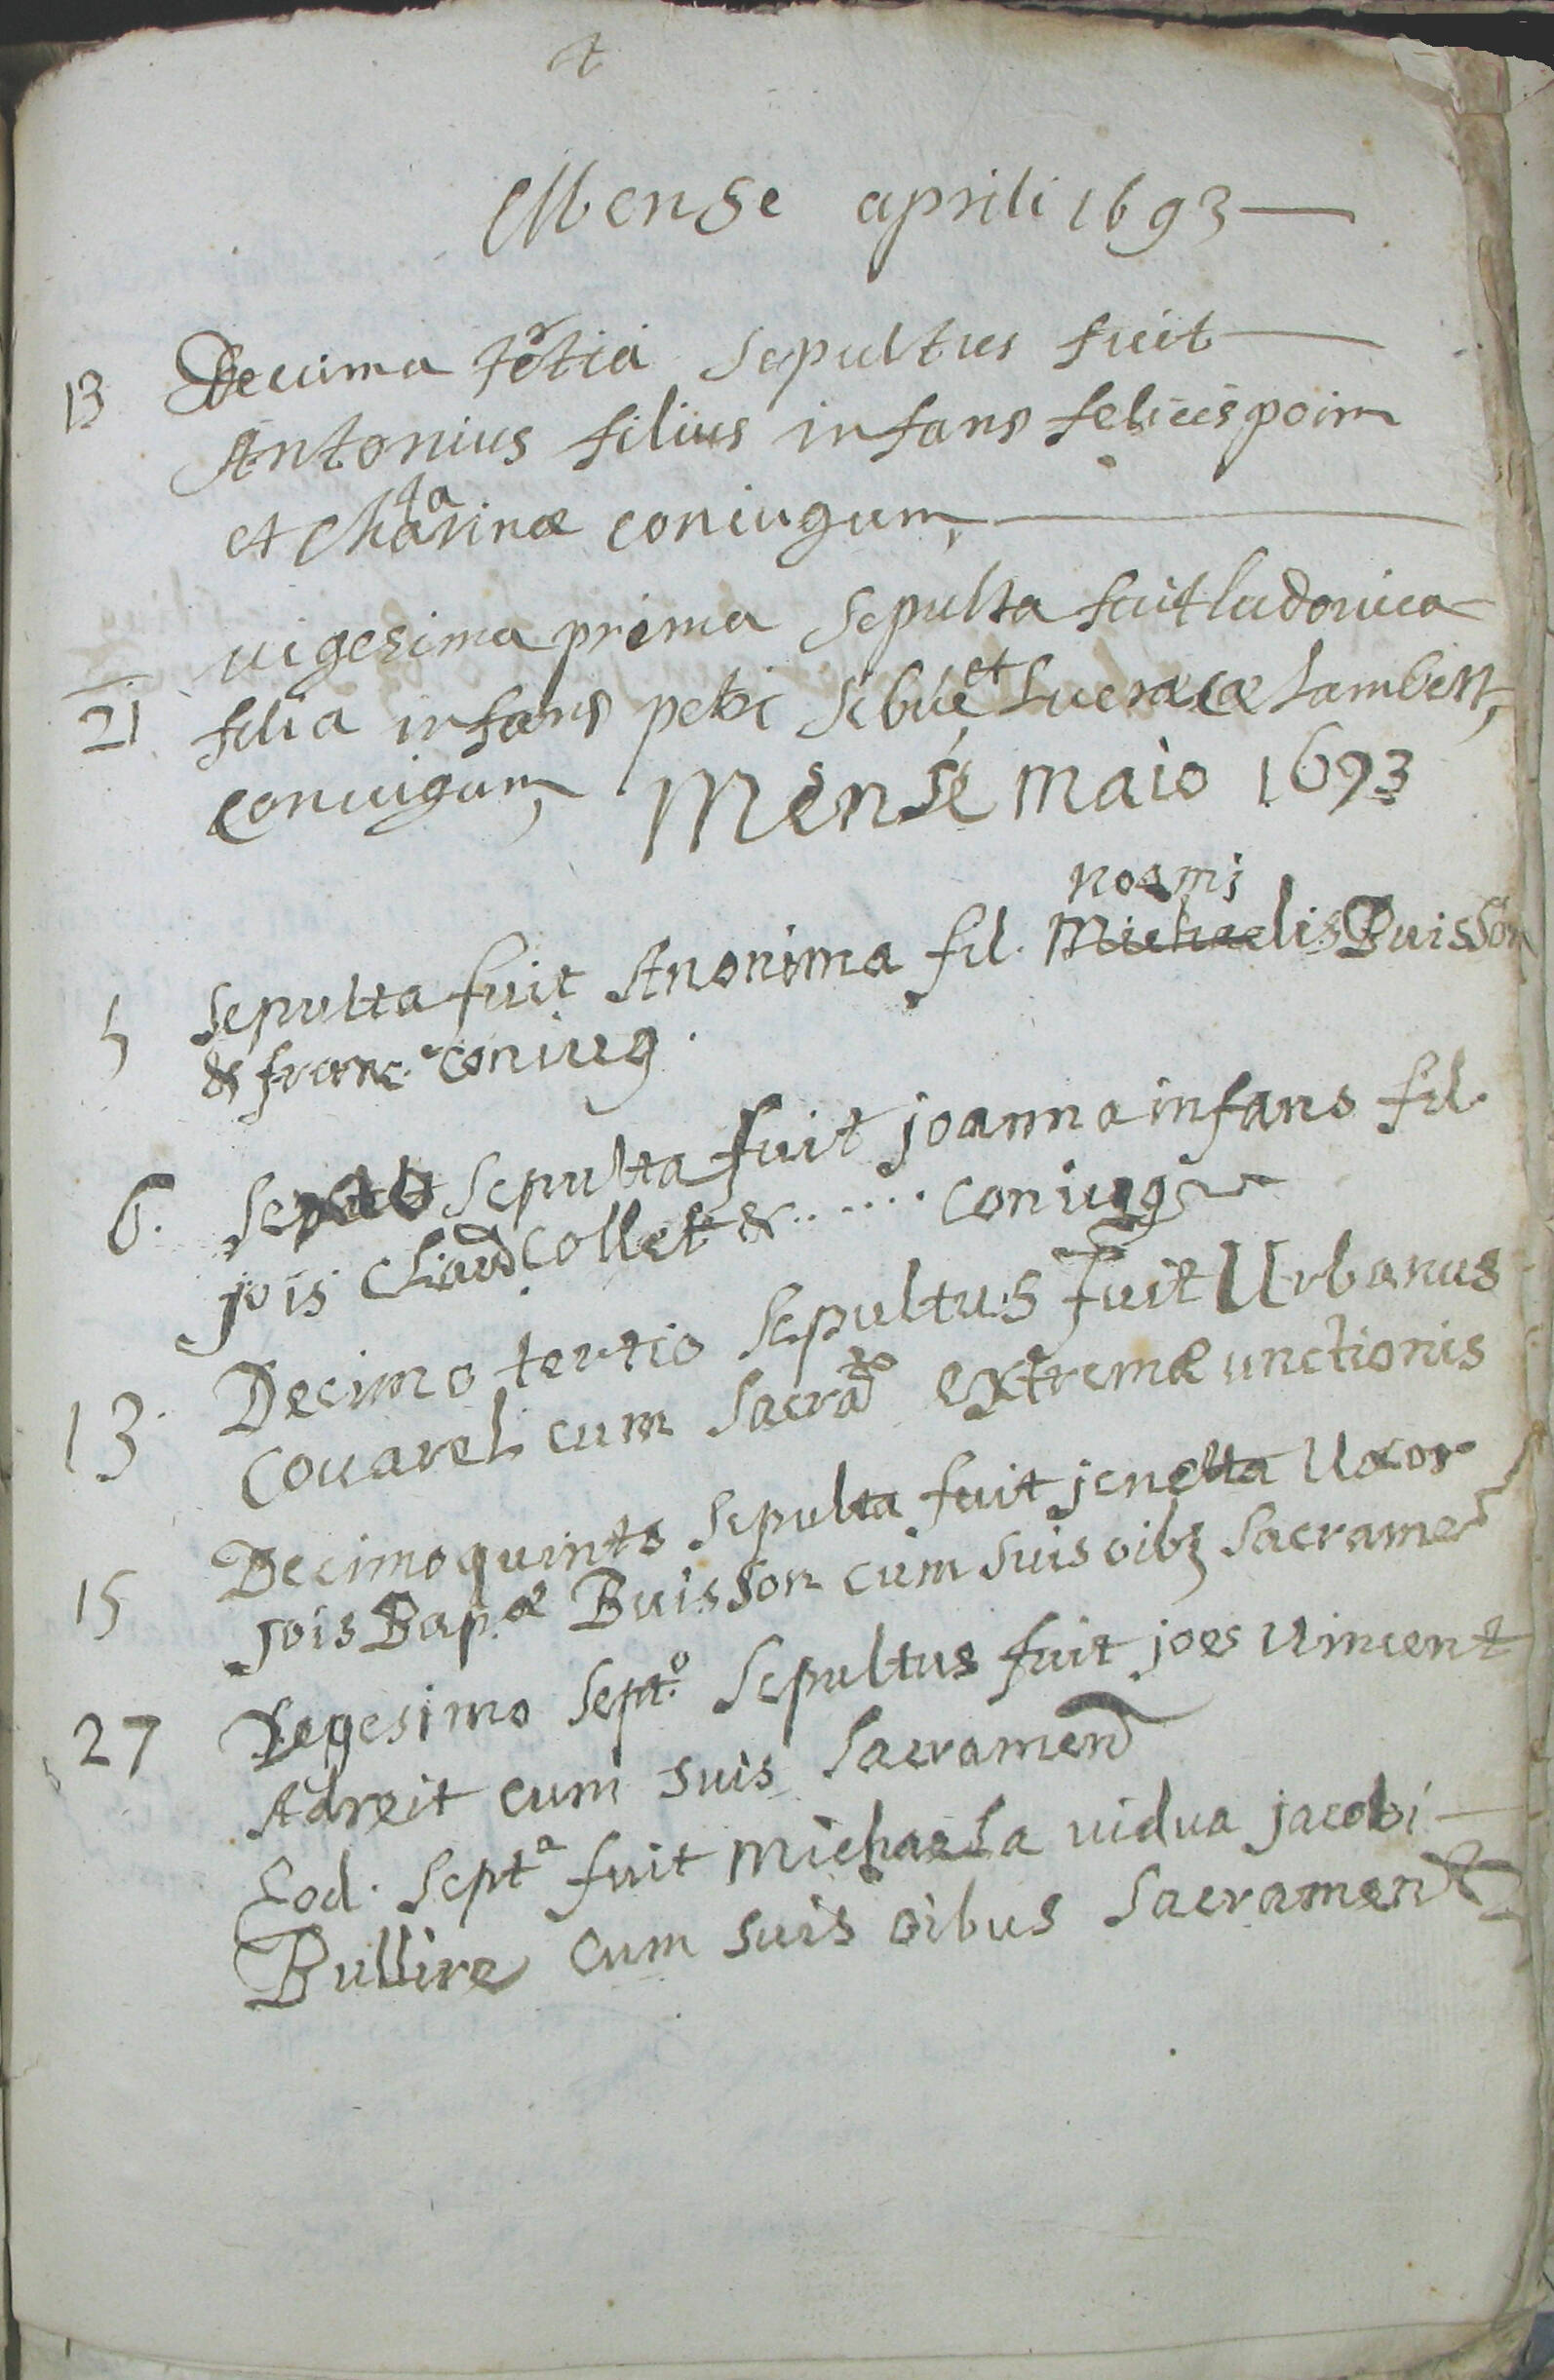 Mense aprili 1693
13 Decima tertia Sepultus fuit
Antonius filius infans felicis poim
et Chatarinæ coniugum
vigesima prima Sepulta fuit ludovica
21 filia infans petri Sibue et Lucræcæ Lambert
coniugum Mense maio 1693
noemi
5 Sepulta fuit Anonima fil. Michaelis Buisson
& franc.æ coniug.
6. Sepulta fuit joanna infans fil.
jois Claud Collet & ...... coniug
13. Decimo tertio Sepultus fuit Urbanus
Couarel cum Sacrato extremæ unctionis
15 Decimo quinto Sepulta fuit jenetta Uxor
Jois Bap.æ Buisson cum suis oibz Sacramen
27 Vegesimo Sept.o Sepultus fuit joes Vincent
Adreit cum suis Sacramen
Eod. Septa fuit Michaela vidua jacobi
Bullire cum suis oibus Sacrament